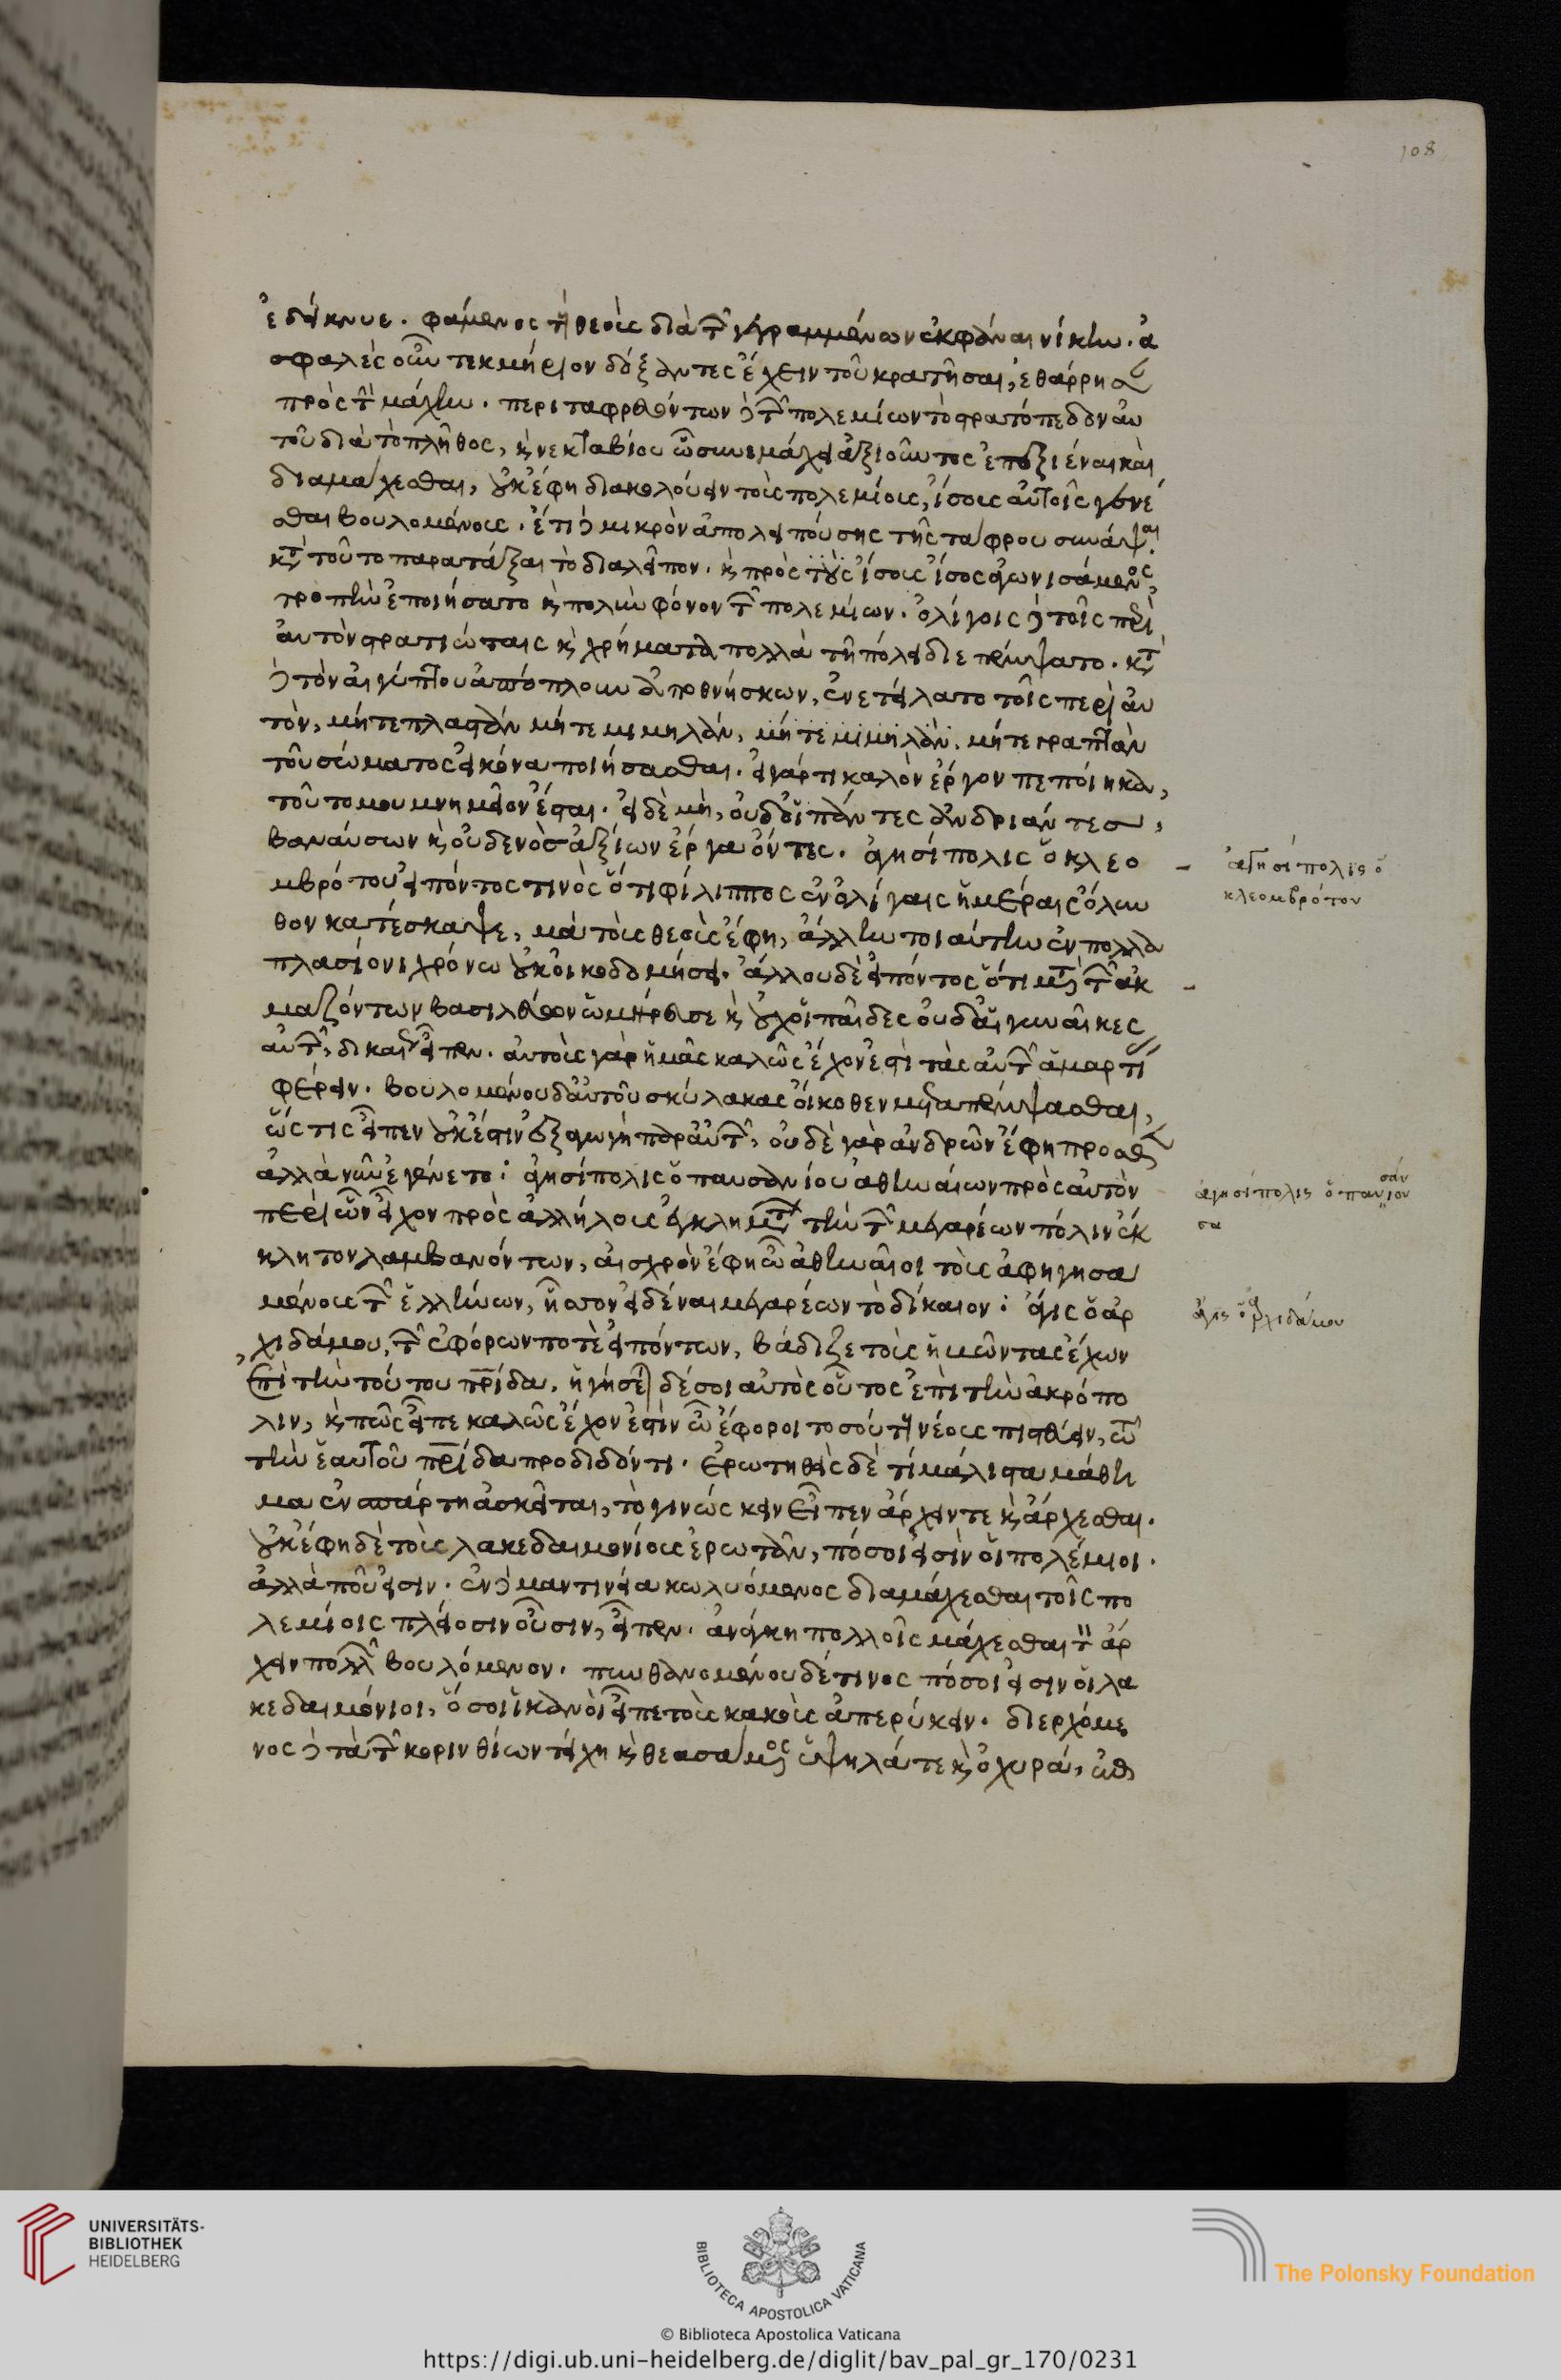 108
ἐδείκνυε. φάμενος τοὺς θεοὺς διὰ τῶν γεγραμμένων ἐκφᾶναι νίκην. ἀ
σφαλὲς οὖν τεκμήριον δόξαντες ἔχειν τοῦ κρατῆσαι, ἐθάρρησαν
πρὸς τὴν μάχην. περιταφρευόντων δὲ τῶν πολεμίων τὸ στρατόπεδον αὐ
τοῦ διὰ τὸ πλῆθος, καὶ νεκταβίου ὧ συνεμάχει ἀξιοῦντος ἐπεξιέναι καὶ
διαμάχεσθαι, οὐκ ἔφη διακωλύειν τοὺς πολεμίους, ἴσους αὐτοῖς γενέ
σθαι βουλομένους. ἔτι δὲ μικρὸν ἀπολειπούσης τῆς τάφρου συνάψαι
κατὰ τοῦτο παρατάξας τὸ διαλεῖπον. καὶ πρὸς τοὺς ἴσους ἴσος ἀγωνισάμενος,
τροπὴν ἐποιήσατο καὶ πολὺν φόνον τῶν πολεμίων. ὀλίγοις δὲ τοῖς περὶ
αὐτὸν στρατιώταις καὶ χρήματα πολλὰ τῇ πόλει διεπέμψατο. κατὰ
δὲ τὸν αἰγύπτου ἀπόπλουν ἀποθνήσκων, ἐνετείλατο τοῖς περὶ αὐ
τὸν, μήτε πλαστὰν μήτε μιμηλὰν, μήτε μιμηλὰν. μήτε γραπτὰν
τοῦ σώματος εἰκόνα ποιήσασθαι. εἰ γάρ τι καλὸν ἔργον πεποίηκα,
τοῦτό μου μνημεῖον ἔσται. εἰ δὲ μὴ, οὐδ' οἱ πάντες ἀνδριάντες,
βαναύσων καὶ οὐδενὸς ἀξίων ἔργα ὄντες. ἀγησίπολις ὁ κλεο
μβρότου εἰπόντος τινὸς ὅτι φίλιππος ἐν ὀλίγαις ἡμέραις ὄλυν
θον κατέσκαψε, μὰ τοὺς θεοὺς ἔφη, ἄλλην τοιαύτην ἐν πολλα
πλασίονι χρόνω οὐκ οἰκοδομήσει. ἄλλου δὲ εἰπόντος ὅτι μετὰ τῶν ἀκ
μαζόντων βασιλεύων ὡμήρευσε καὶ οὐχ οἱ παῖδες οὐδ' αἱ γυναῖκες
αὐτῶν, δίκαιον εἶπεν. αὐτοὺς γὰρ ἡμᾶς καλῶς ἔχον ἐστὶ τὰς αὐτῶν ἁμαρτίας
φέρειν. βουλομένου δ' αὐτοῦ σκύλακας οἴκοθεν μεταπέμψασθαι,
ὥς τις εἶπεν οὐκ ἔστιν ἐξαγωγὴ παρ' αὐτῶν, οὐδὲ γὰρ ἀνδρῶν ἔφη πρόσθεν
ἀλλὰ νῦν ἐγένετο: ἀγησίπολις ὁ παυσανίου ἀθηναίων πρὸς αὐτὸν
περὶ ὧν εἶχον πρὸς ἀλλήλους ἐγκλημάτων τὴν τῶν μεγαρέων πόλιν ἔκ
κλητον λαμβανόντων, αἰσχρὸν ἔφη ὦ ἀθηναῖοι τοὺς ἀφηγησα
μένους τῶν ἑλλήνων, ἧσσον εἰδέναι μεγαρέων τὸ δίκαιον: ἆγις ὁ ἀρ
χιδάμου, τῶν ἐφόρων ποτὲ εἰπόντων, βάδιζε τοὺς ἡμῶντας ἔχων
ἐπὶ τὴν τούτου πατρίδα. ἡγήσεται δέ σοι αὐτὸς οὗτος ἐπὶ τὴν ἀκρόπο
λιν, καὶ πῶς εἶπε καλῶς ἔχον ἐστὶν ὦ ἔφοροι τοσούτους νέους πιστεύειν, ὧ
τὴν ἑαυτοῦ πατρίδα προδιδόντι. ἐρωτηθεὶς δὲ τί μάλιστα μάθη
μα ἐν σπάρτη ἀσκεῖται, τὸ γινώσκειν εἶπεν ἄρχειν τε καὶ ἄρχεσθαι.
οὐκ ἔφη δὲ τοὺς λακεδαιμονίους ἐρωτᾶν, πόσοι εἰσὶν οἱ πολέμιοι.
ἀλλὰ ποῦ εἰσιν. ἐν δὲ μαντινεία κωλυόμενος διαμάχεσθαι τοῖς πο
λεμίοις πλείοσιν οὖσιν, εἶπεν. ἀνάγκη πολλοῖς μάχεσθαι τὸν ἄρ
χειν πολλῶν βουλόμενον. πυνθανομένου δέ τινος πόσοι εἰσιν οἱ λα
κεδαιμόνιοι, ὅσοι ἱκανοὶ εἶπε τοὺς κακοὺς ἀπερύκειν. διερχόμε
νος δὲ τὰ τῶν κορινθίων τείχη καὶ θεασάμενος ὑψηλά τε καὶ ὀχυρά, εὐθ
ἀγησίπολις ὁ
κλεομβρότου
ἀγησίπολις ὁ παυσανίου
σα
ἆγις ὁ ἀρχιδάμου
UNIVERSITÄTS-
BIBLIOTHEK
HEIDELBERG
BIBLIOTECA APOSTOLICA VATICANA
The Polonsky Foundation
© Biblioteca Apostolica Vaticana
https://digi.ub.uni-heidelberg.de/diglit/bav_pal_gr_170/0231